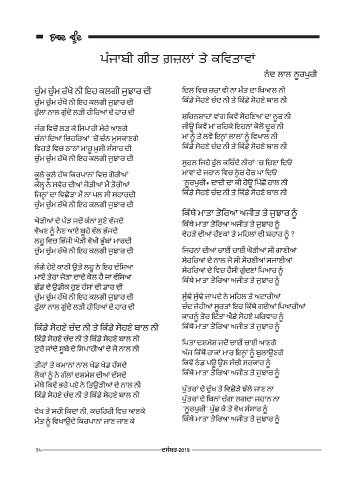 ਪੰਜਾਬੀ ਗੀਤ ਗ਼ਜ਼ਲਾਂ ਤੇ ਕਵਿਤਾਵਾਂ
ਨੰਦ ਲਾਲ ਨੂਰਪੁਰੀ
ਚੁੰਮ ਚੁੰਮ ਰੱਖੋ ਨੀ ਇਹ ਕਲਗੀ ਜੁਝਾਰ ਦੀ
ਚੁੰਮ ਚੁੰਮ ਰੱਖੋ ਨੀ ਇਹ ਕਲਗੀ ਜੁਝਾਰ ਦੀ
ਫੁੱਲਾਂ ਨਾਲ ਗੁੰਦੋ ਲੜੀ ਹੀਰਿਆਂ ਦੇ ਹਾਰ ਦੀ
ਜੰਗ ਵਿਚੋਂ ਲੜ ਕੇ ਸਿਪਾਹੀ ਮੇਰੇ ਆਣਗੇ
ਚੰਨਾਂ ਦਿਆਂ ਚਿਹਰਿਆਂ 'ਚੋਂ ਚੰਨ ਮੁਸਕਾਣਗੇ
ਵਿਹੜੇ ਵਿਚ ਠਾਠਾਂ ਮਾਰੂ ਖ਼ੁਸ਼ੀ ਸੰਸਾਰ ਦੀ
ਚੁੰਮ ਚੁੰਮ ਰੱਖੋ ਨੀ ਇਹ ਕਲਗੀ ਜੁਝਾਰ ਦੀ
ਕੂਲੇ ਕੂਲੇ ਹੱਥ ਕਿਰਪਾਨਾਂ ਵਿਚ ਗੋਰੀਆਂ
ਕੱਲ੍ਹ ਨੇ ਸਵੇਰ ਦੀਆਂ ਜੋੜੀਆਂ ਮੈਂ ਤੋਰੀਆਂ
ਜਿਨ੍ਹਾਂ ਦਾ ਵਿਛੋੜਾ ਮੈਂ ਨਾ ਪਲ ਸੀ ਸਹਾਰਦੀ
ਚੁੰਮ ਚੁੰਮ ਰੱਖੋ ਨੀ ਇਹ ਕਲਗੀ ਜੁਝਾਰ ਦੀ
ਘੋੜੀਆਂ ਦੇ ਪੌੜ ਜਦੋਂ ਕੰਨਾਂ ਸੁਣੇ ਵੱਜਦੇ
ਵੇਖਣ ਨੂੰ ਨੈਣ ਆਏ ਬੂਹੇ ਵੱਲ ਭੱਜਦੇ
ਲਹੂ ਵਿਚ ਭਿੱਜੀ ਘੋੜੀ ਵੇਖੀ ਭੁੱਬਾਂ ਮਾਰਦੀ
ਚੁੰਮ ਚੁੰਮ ਰੱਖੋ ਨੀ ਇਹ ਕਲਗੀ ਜੁਝਾਰ ਦੀ
ਲੱਗੇ ਹੋਏ ਕਾਠੀ ਉਤੇ ਲਹੂ ਨੇ ਇਹ ਦੱਸਿਆ
ਮਾਏ ਤੇਰਾ ਜੋੜਾ ਦਾਦੇ ਕੋਲ ਹੈ ਜਾ ਵੱਸਿਆ
ਛੱਡ ਦੇ ਉਡੀਕ ਹੁਣ ਹੰਸਾਂ ਦੀ ਡਾਰ ਦੀ
ਚੁੰਮ ਚੁੰਮ ਰੱਖੋ ਨੀ ਇਹ ਕਲਗੀ ਜੁਝਾਰ ਦੀ
ਫੁੱਲਾਂ ਨਾਲ ਗੁੰਦੋ ਲੜੀ ਹੀਰਿਆਂ ਦੇ ਹਾਰ ਦੀ
ਕਿੰਡੇ ਸੋਹਣੇ ਚੰਦ ਨੀ ਤੇ ਕਿੰਡੇ ਸੋਹਣੇ ਬਾਲ ਨੀ
ਕਿੰਡੇ ਸੋਹਣੇ ਚੰਦ ਨੀ ਤੇ ਕਿੰਡੇ ਸੋਹਣੇ ਬਾਲ ਨੀ
ਟੁਰੇ ਜਾਂਦੇ ਸੂਬੇ ਦੇ ਸਿਪਾਹੀਆਂ ਦੇ ਜੋ ਨਾਲ ਨੀ
ਤੀਰਾਂ ਤੇ ਕਮਾਨਾਂ ਨਾਲ ਖੇਡ ਖੇਡ ਹੱਸਦੇ
ਲੋਕਾਂ ਨੂੰ ਨੇ ਗੱਲਾਂ ਦਸਮੇਸ਼ ਦੀਆਂ ਦੱਸਦੇ
ਮੱਥੇ ਕਿਵੇਂ ਭਰੇ ਪਏ ਨੇ ਤਿਉੜੀਆਂ ਦੇ ਨਾਲ ਨੀ
ਕਿੰਡੇ ਸੋਹਣੇ ਚੰਦ ਨੀ ਤੇ ਕਿੰਡੇ ਸੋਹਣੇ ਬਾਲ ਨੀ
ਵੇਖ ਤੇ ਸਹੀ ਕਿਦਾਂ ਨੀ, ਕਚਹਿਰੀ ਵਿਚ ਆਣਕੇ
ਮੌਤ ਨੂੰ ਵਿਖਾਉਂਦੇ ਕਿਰਪਾਨਾਂ ਜਾਣ ਜਾਣ ਕੇ
ਦਿਲ ਵਿਚ ਜ਼ਰਾ ਵੀ ਨਾ ਮੌਤ ਦਾ ਖ਼ਿਆਲ ਨੀ
ਕਿੰਡੇ ਸੋਹਣੇ ਚੰਦ ਨੀ ਤੇ ਕਿੰਡੇ ਸੋਹਣੇ ਬਾਲ ਨੀ
ਸ਼ਹਿਨਸ਼ਾਹਾਂ ਵਾਂਗ ਕਿਵੇਂ ਸੋਹਣਿਆਂ ਦਾ ਨੂਰ ਨੀ
ਜੀਊ ਕਿਵੇਂ ਮਾਂ ਰਹਿਕੇ ਇਹਨਾਂ ਕੋਲੋਂ ਦੂਰ ਨੀ
ਮਾਂ ਨੂੰ ਤੇ ਲਵੋ ਇਨ੍ਹਾਂ ਲਾਲਾਂ ਨੂੰ ਵਿਖਾਲ ਨੀ
ਕਿੰਡੇ ਸੋਹਣੇ ਚੰਦ ਨੀ ਤੇ ਕਿੰਡੇ ਸੋਹਣੇ ਬਾਲ ਨੀ
ਸੁਹਲ ਜਿਹੇ ਫੁੱਲ ਕਹਿੰਦੇ ਨੀਹਾਂ 'ਚ ਚਿਣਾ ਦਿਓ
ਮਾਵਾਂ ਦੇ ਜਹਾਨ ਵਿਚ ਨ੍ਹੇਰ ਹੋਰ ਪਾ ਦਿਓ
'ਨੂਰਪੁਰੀ' ਦਾਦੀ ਦਾ ਕੀ ਹੋਊ ਪਿੱਛੋਂ ਹਾਲ ਨੀ
ਕਿੰਡੇ ਸੋਹਣੇ ਚੰਦ ਨੀ ਤੇ ਕਿੰਡੇ ਸੋਹਣੇ ਬਾਲ ਨੀ
ਕਿੱਥੇ ਮਾਤਾ ਤੋਰਿਆ ਅਜੀਤ ਤੇ ਜੁਝਾਰ ਨੂੰ
ਕਿੱਥੇ ਮਾਤਾ ਤੋਰਿਆ ਅਜੀਤ ਤੇ ਜੁਝਾਰ ਨੂੰ
ਵੇਹੜੇ ਦੀਆਂ ਰੌਣਕਾਂ ਤੇ ਮਹਿਲਾਂ ਦੀ ਬਹਾਰ ਨੂੰ ?
ਜਿਹਨਾਂ ਦੀਆਂ ਚਾਈਂ ਚਾਈਂ ਘੋੜੀਆਂ ਸੀ ਗਾਣੀਆਂ
ਸੇਹਰਿਆਂ ਦੇ ਨਾਲ ਜੋ ਸੀ ਸੋਹਣੀਆਂ ਸਜਾਣੀਆਂ
ਸੇਹਰਿਆਂ ਦੇ ਵਿਚ ਹੈਸੀ ਗੁੰਦਣਾਂ ਪਿਆਰ ਨੂੰ
ਕਿੱਥੇ ਮਾਤਾ ਤੋਰਿਆ ਅਜੀਤ ਤੇ ਜੁਝਾਰ ਨੂੰ
ਸੁੰਞੇ ਸੁੰਞੇ ਜਾਪਦੇ ਨੇ ਮਹਿਲ ਤੇ ਅਟਾਰੀਆਂ
ਚੰਦ ਜੇਹੀਆਂ ਸੂਰਤਾਂ ਇਹ ਕਿੱਥੇ ਗਈਆਂ ਪਿਆਰੀਆਂ
ਕਾਹਨੂੰ ਤੋਰ ਦਿੱਤਾ ਐਡੇ ਸੋਹਣੇ ਪਰਿਵਾਰ ਨੂੰ
ਕਿੱਥੇ ਮਾਤਾ ਤੋਰਿਆ ਅਜੀਤ ਤੇ ਜੁਝਾਰ ਨੂੰ
ਪਿਤਾ ਦਸਮੇਸ਼ ਜਦੋਂ ਚਾਈਂ ਚਾਈਂ ਆਣਗੇ
ਅੱਜ ਕਿੱਥੋਂ ਹਾਕਾਂ ਮਾਰ ਇਨ੍ਹਾਂ ਨੂੰ ਬੁਲਾਉਣਗੇ
ਕਿਵੇਂ ਠੰਡ ਪਊ ਉਸ ਸੱਚੀ ਸਰਕਾਰ ਨੂੰ
ਕਿੱਥੇ ਮਾਤਾ ਤੋਰਿਆ ਅਜੀਤ ਤੇ ਜੁਝਾਰ ਨੂੰ
ਪੁੱਤਰਾਂ ਦੇ ਦੁੱਖ ਤੇ ਵਿਛੋੜੇ ਝੱਲੇ ਜਾਣ ਨਾ
ਪੁੱਤਰਾਂ ਦੇ ਬਿਨਾਂ ਚੰਗਾ ਲਗਦਾ ਜਹਾਨ ਨਾ
'ਨੂਰਪੁਰੀ' ਪੁੱਛ ਕੇ ਤੇ ਵੇਖ ਸੰਸਾਰ ਨੂੰ
ਕਿੱਥੇ ਮਾਤਾ ਤੋਰਿਆ ਅਜੀਤ ਤੇ ਜੁਝਾਰ ਨੂੰ
ਦਸੰਬਰ-2019